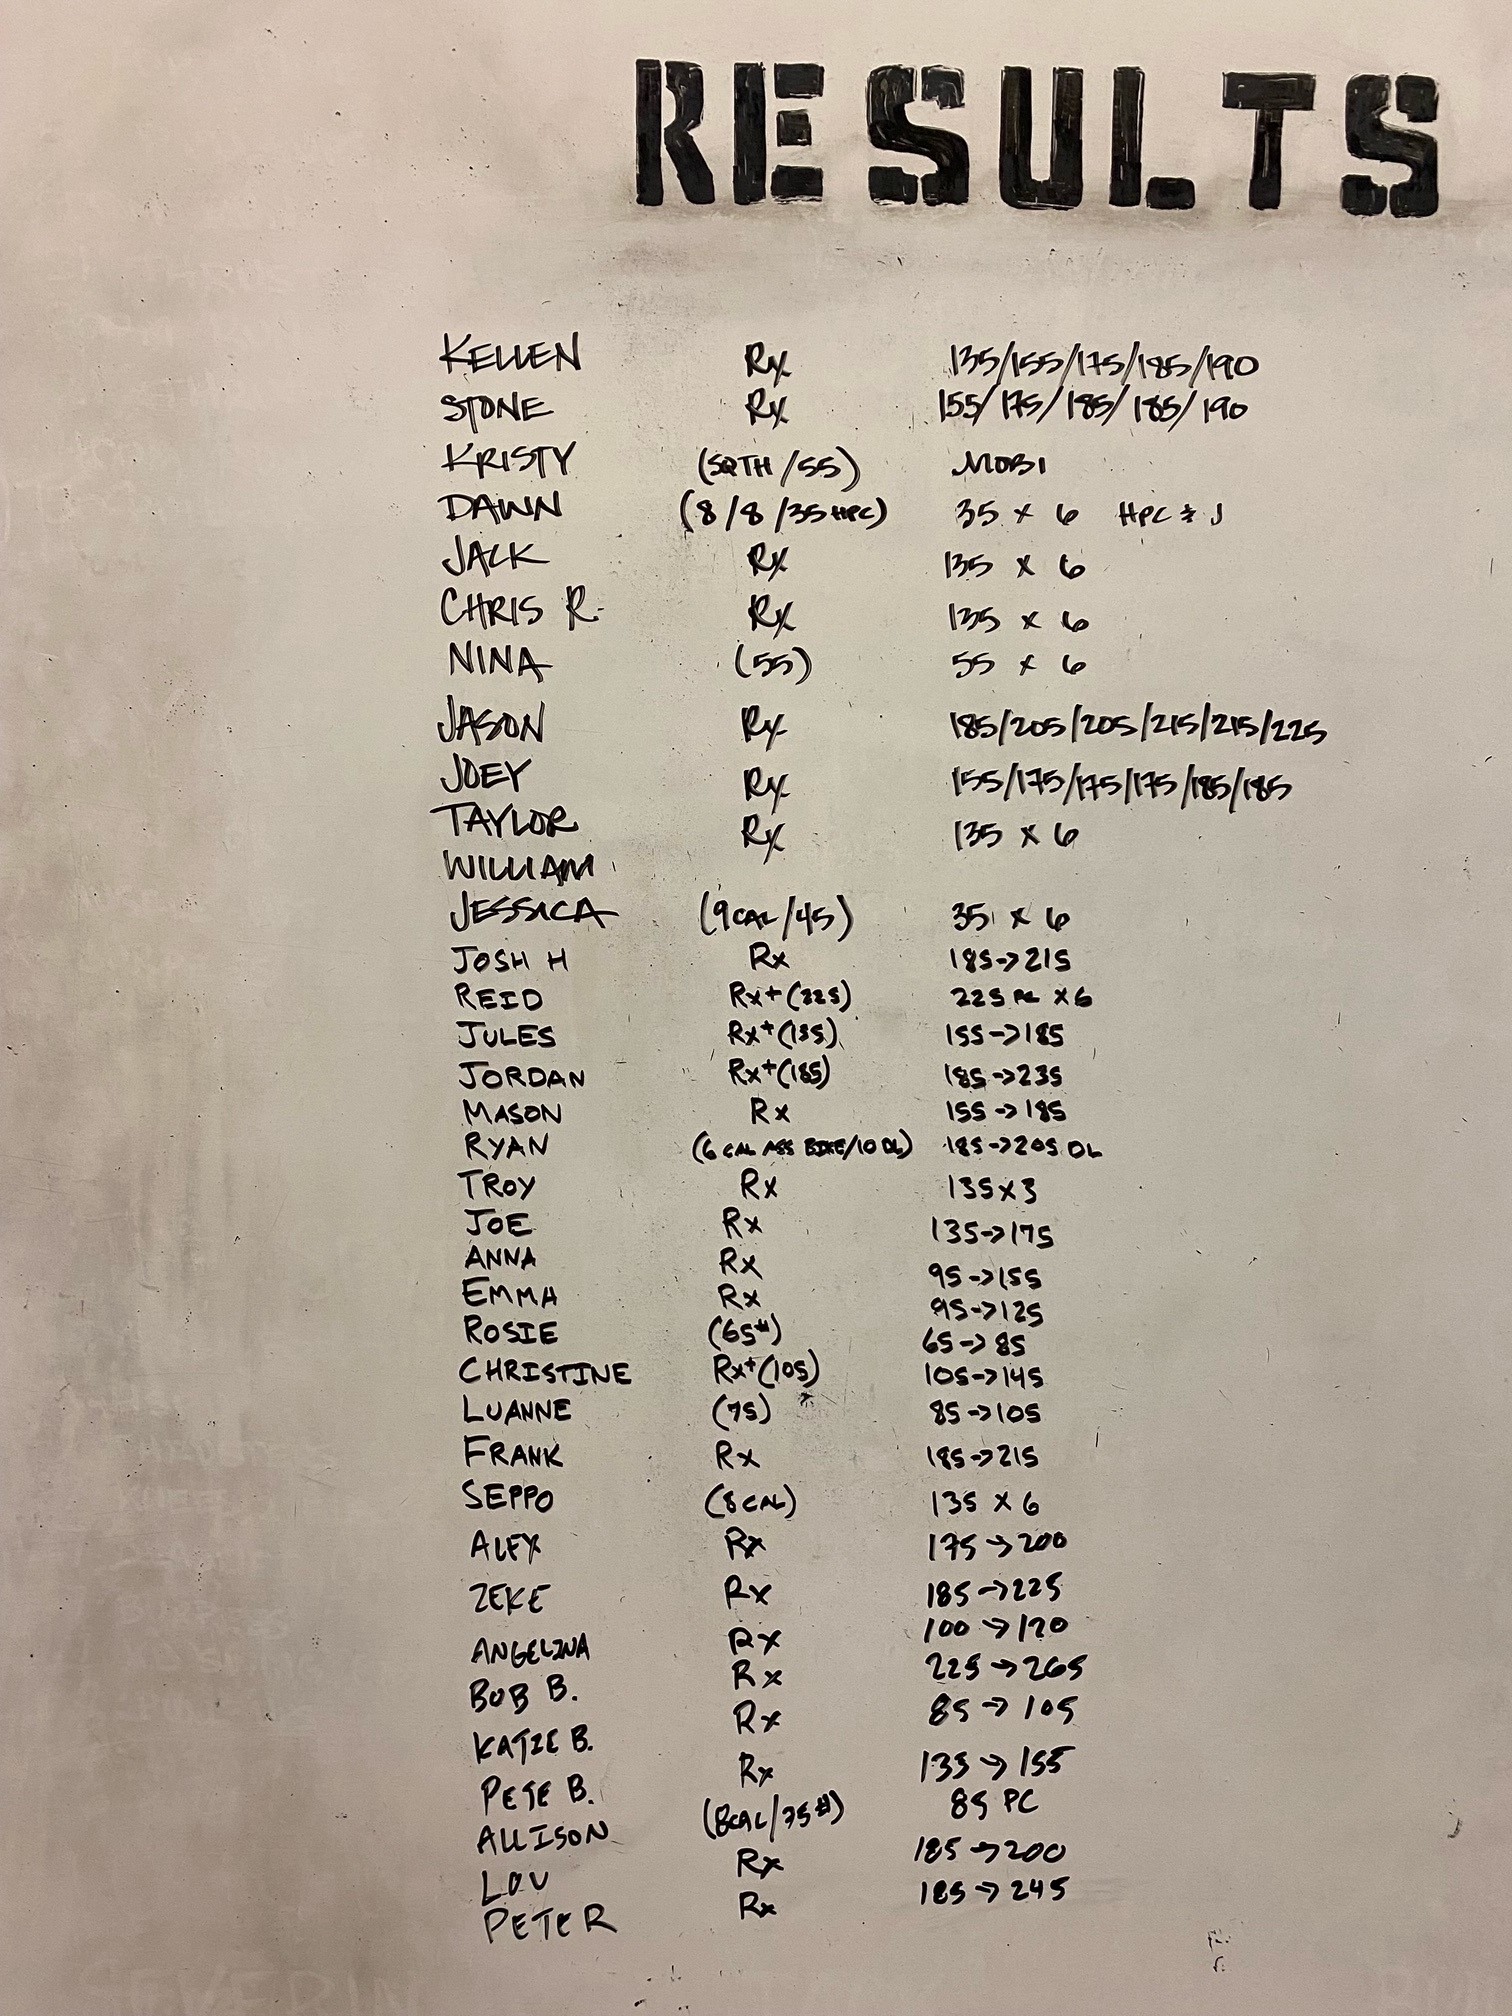 RESULTS
KELLEN Rx 135/155/175/185/190
STONE Rx 155/175/185/185/190
KRISTY (SQTH/55) MOBI
DAWN (8/8/35 HPC) 35 x 6 HPC & J
JACK Rx 135 x 6
CHRIS R. Rx 135 x 6
NINA (55) 55 x 6
JASON Rx 185/205/205/215/215/225
JOEY Rx 155/175/175/175/185/185
TAYLOR Rx 135 x 6
WILLIAM
JESSICA (9 CAL/45) 35 x 6
JOSH H Rx 185->215
REID Rx+(225) 225 PC x6
JULES Rx+(135) 155->185
JORDAN Rx+(185) 185->235
MASON Rx 155->185
RYAN (6 CAL ASS BIKE/10 DL) 185->205 DL
TROY Rx 135x3
JOE Rx 135->175
ANNA Rx 95->155
EMMA Rx 95->125
ROSIE (65#) 65->85
CHRISTINE Rx+(105) 105->145
LUANNE (75) 85->105
FRANK Rx 185->215
SEPPO (8 CAL) 135 x 6
ALEX Rx 175->200
ZEKE Rx 185->225
ANGELINA Rx 100->120
BOB B. Rx 225->265
KATIE B. Rx 85->105
PETE B. Rx 135->155
ALLISON (8CAL/75#) 85 PC
LOU Rx 185->200
PETER Rx 185->245